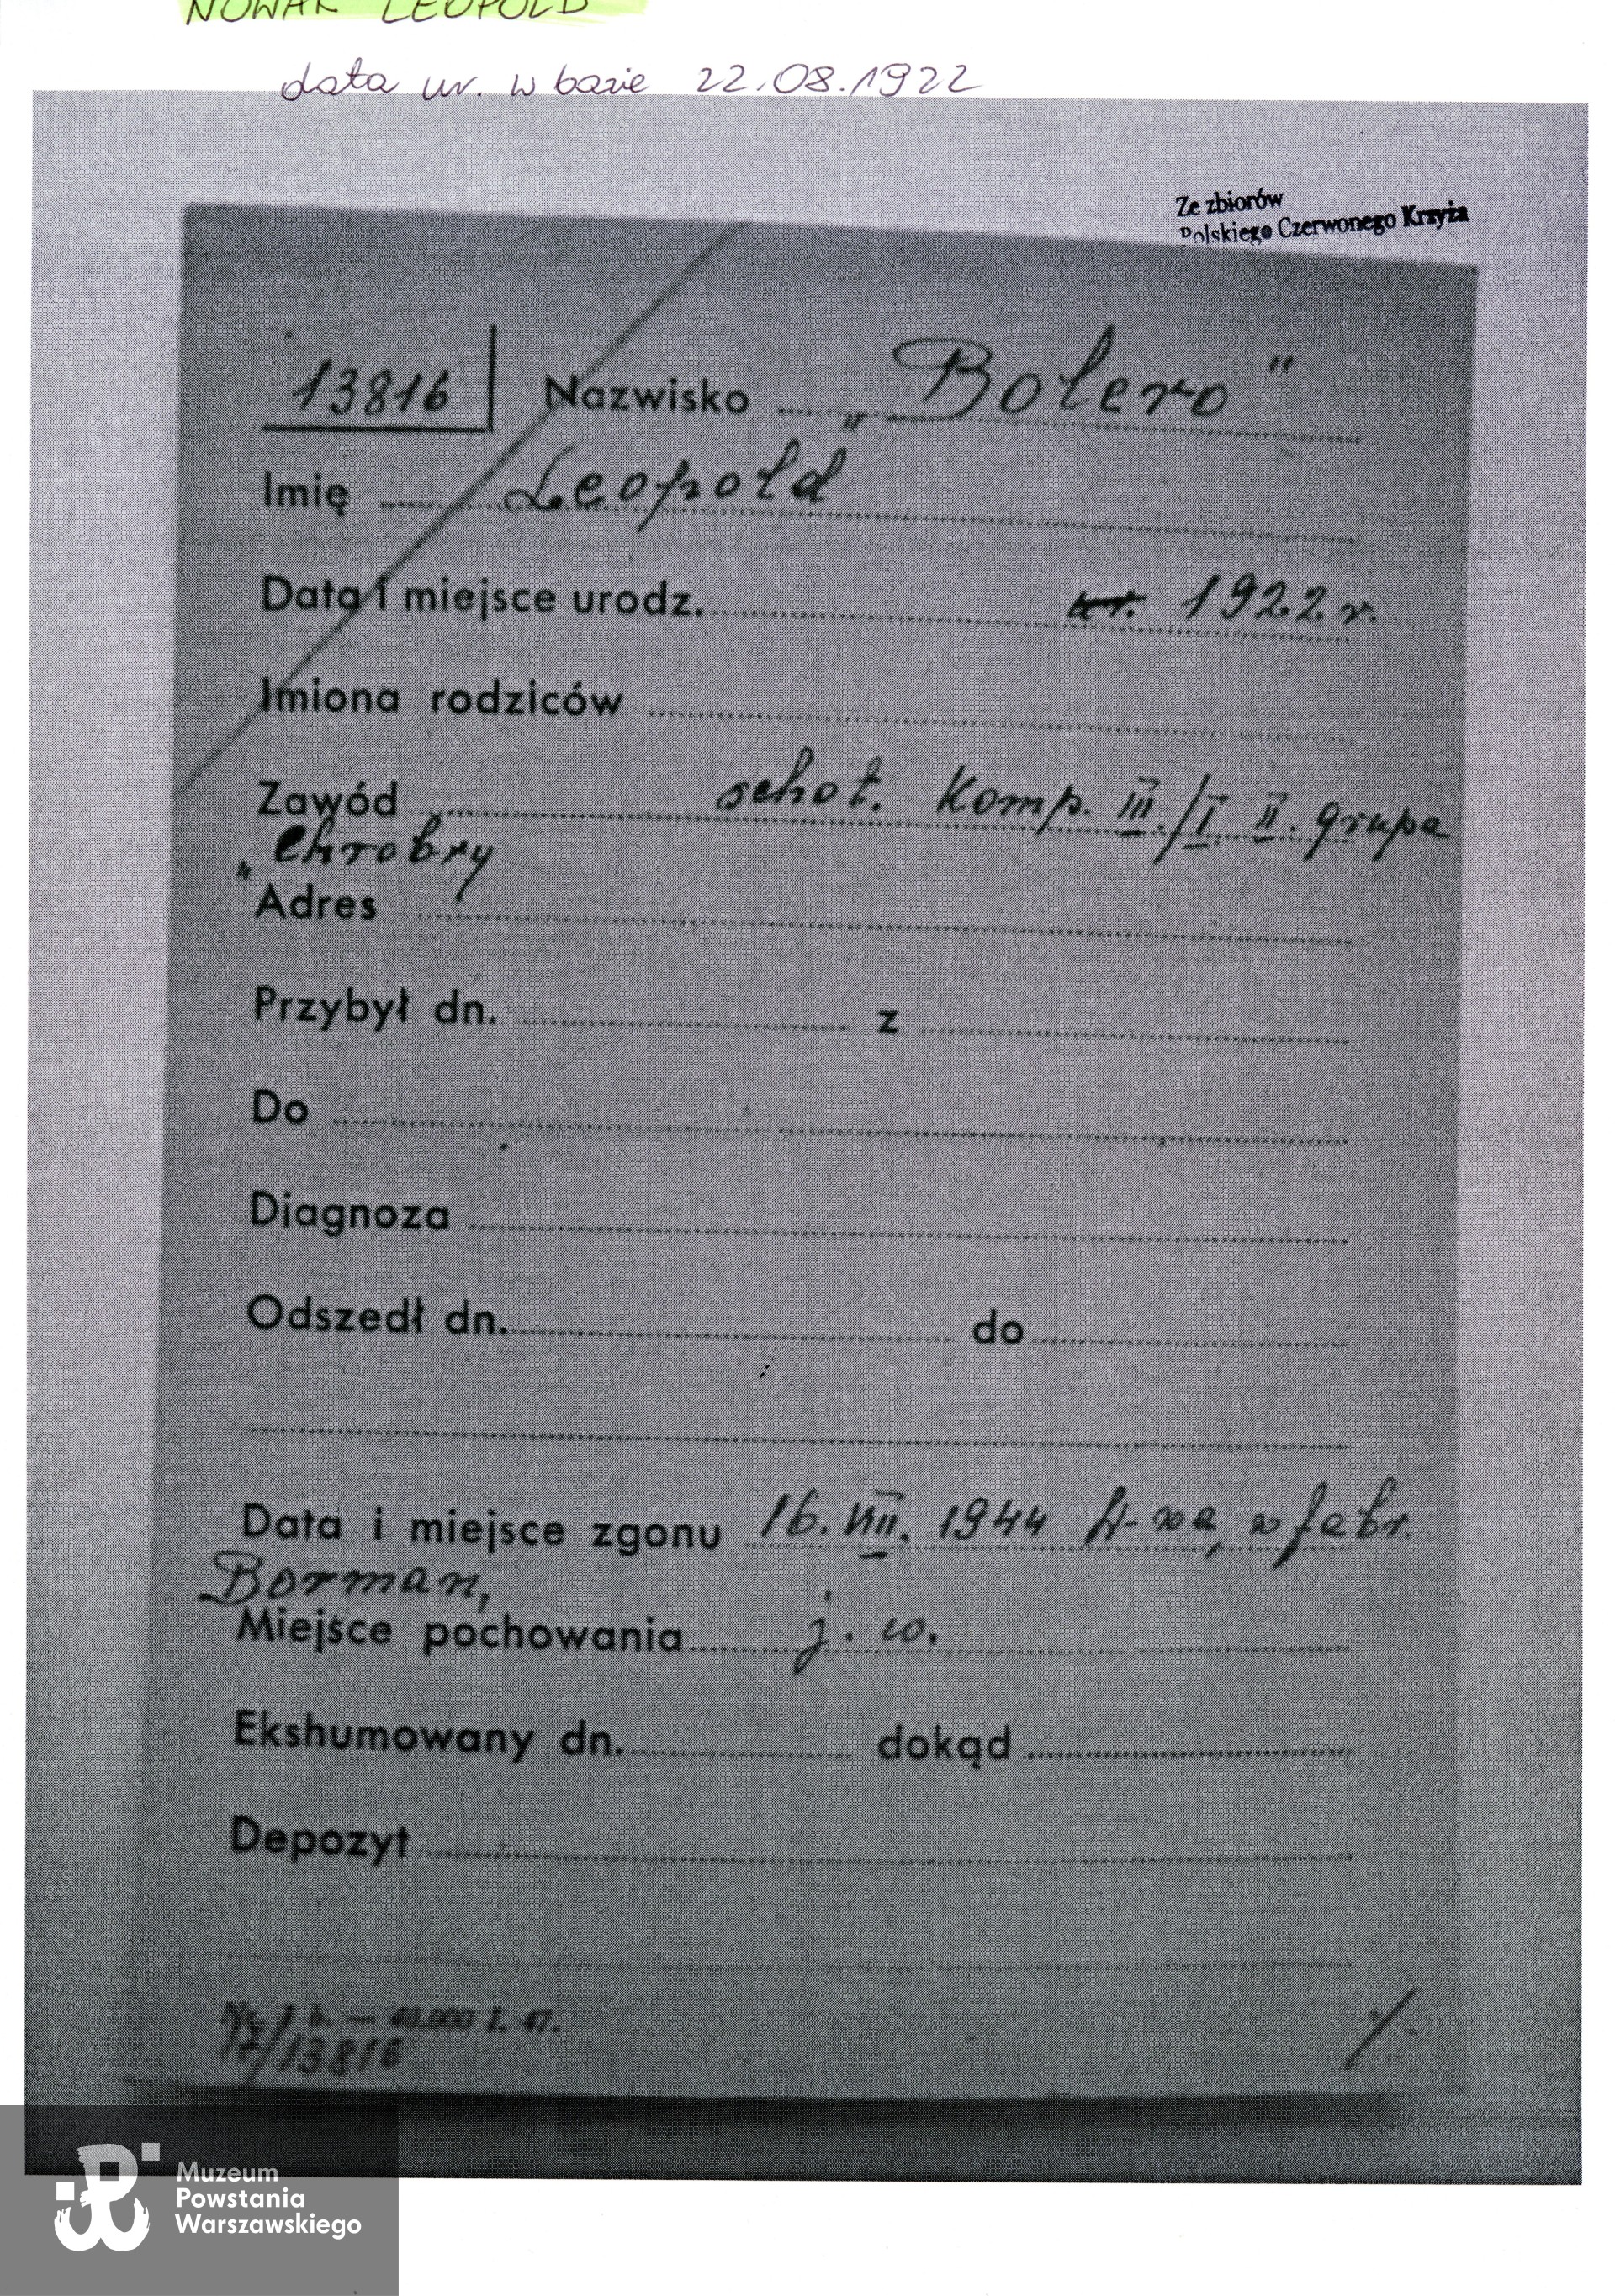 NOWAK LEOPOLD
data ur. w bazie 22.08.1922
Ze zbiorów
Polskiego Czerwonego Krzyża
13816 Nazwisko „Bolero"
Imię Leopold
Data i miejsce urodz. ur. 1922 r.
Imiona rodziców
Zawód schot. Komp. III./I II. grupa
„Chrobry
Adres
Przybył dn. z
Do
Diagnoza
Odszedł dn. do
Data i miejsce zgonu 16.VIII. 1944 W-wa, w fabr.
Borman,
Miejsce pochowania j. w.
Ekshumowany dn. dokąd
Depozyt
40.000 I. 47.
17/13816
Muzeum
Powstania
Warszawskiego